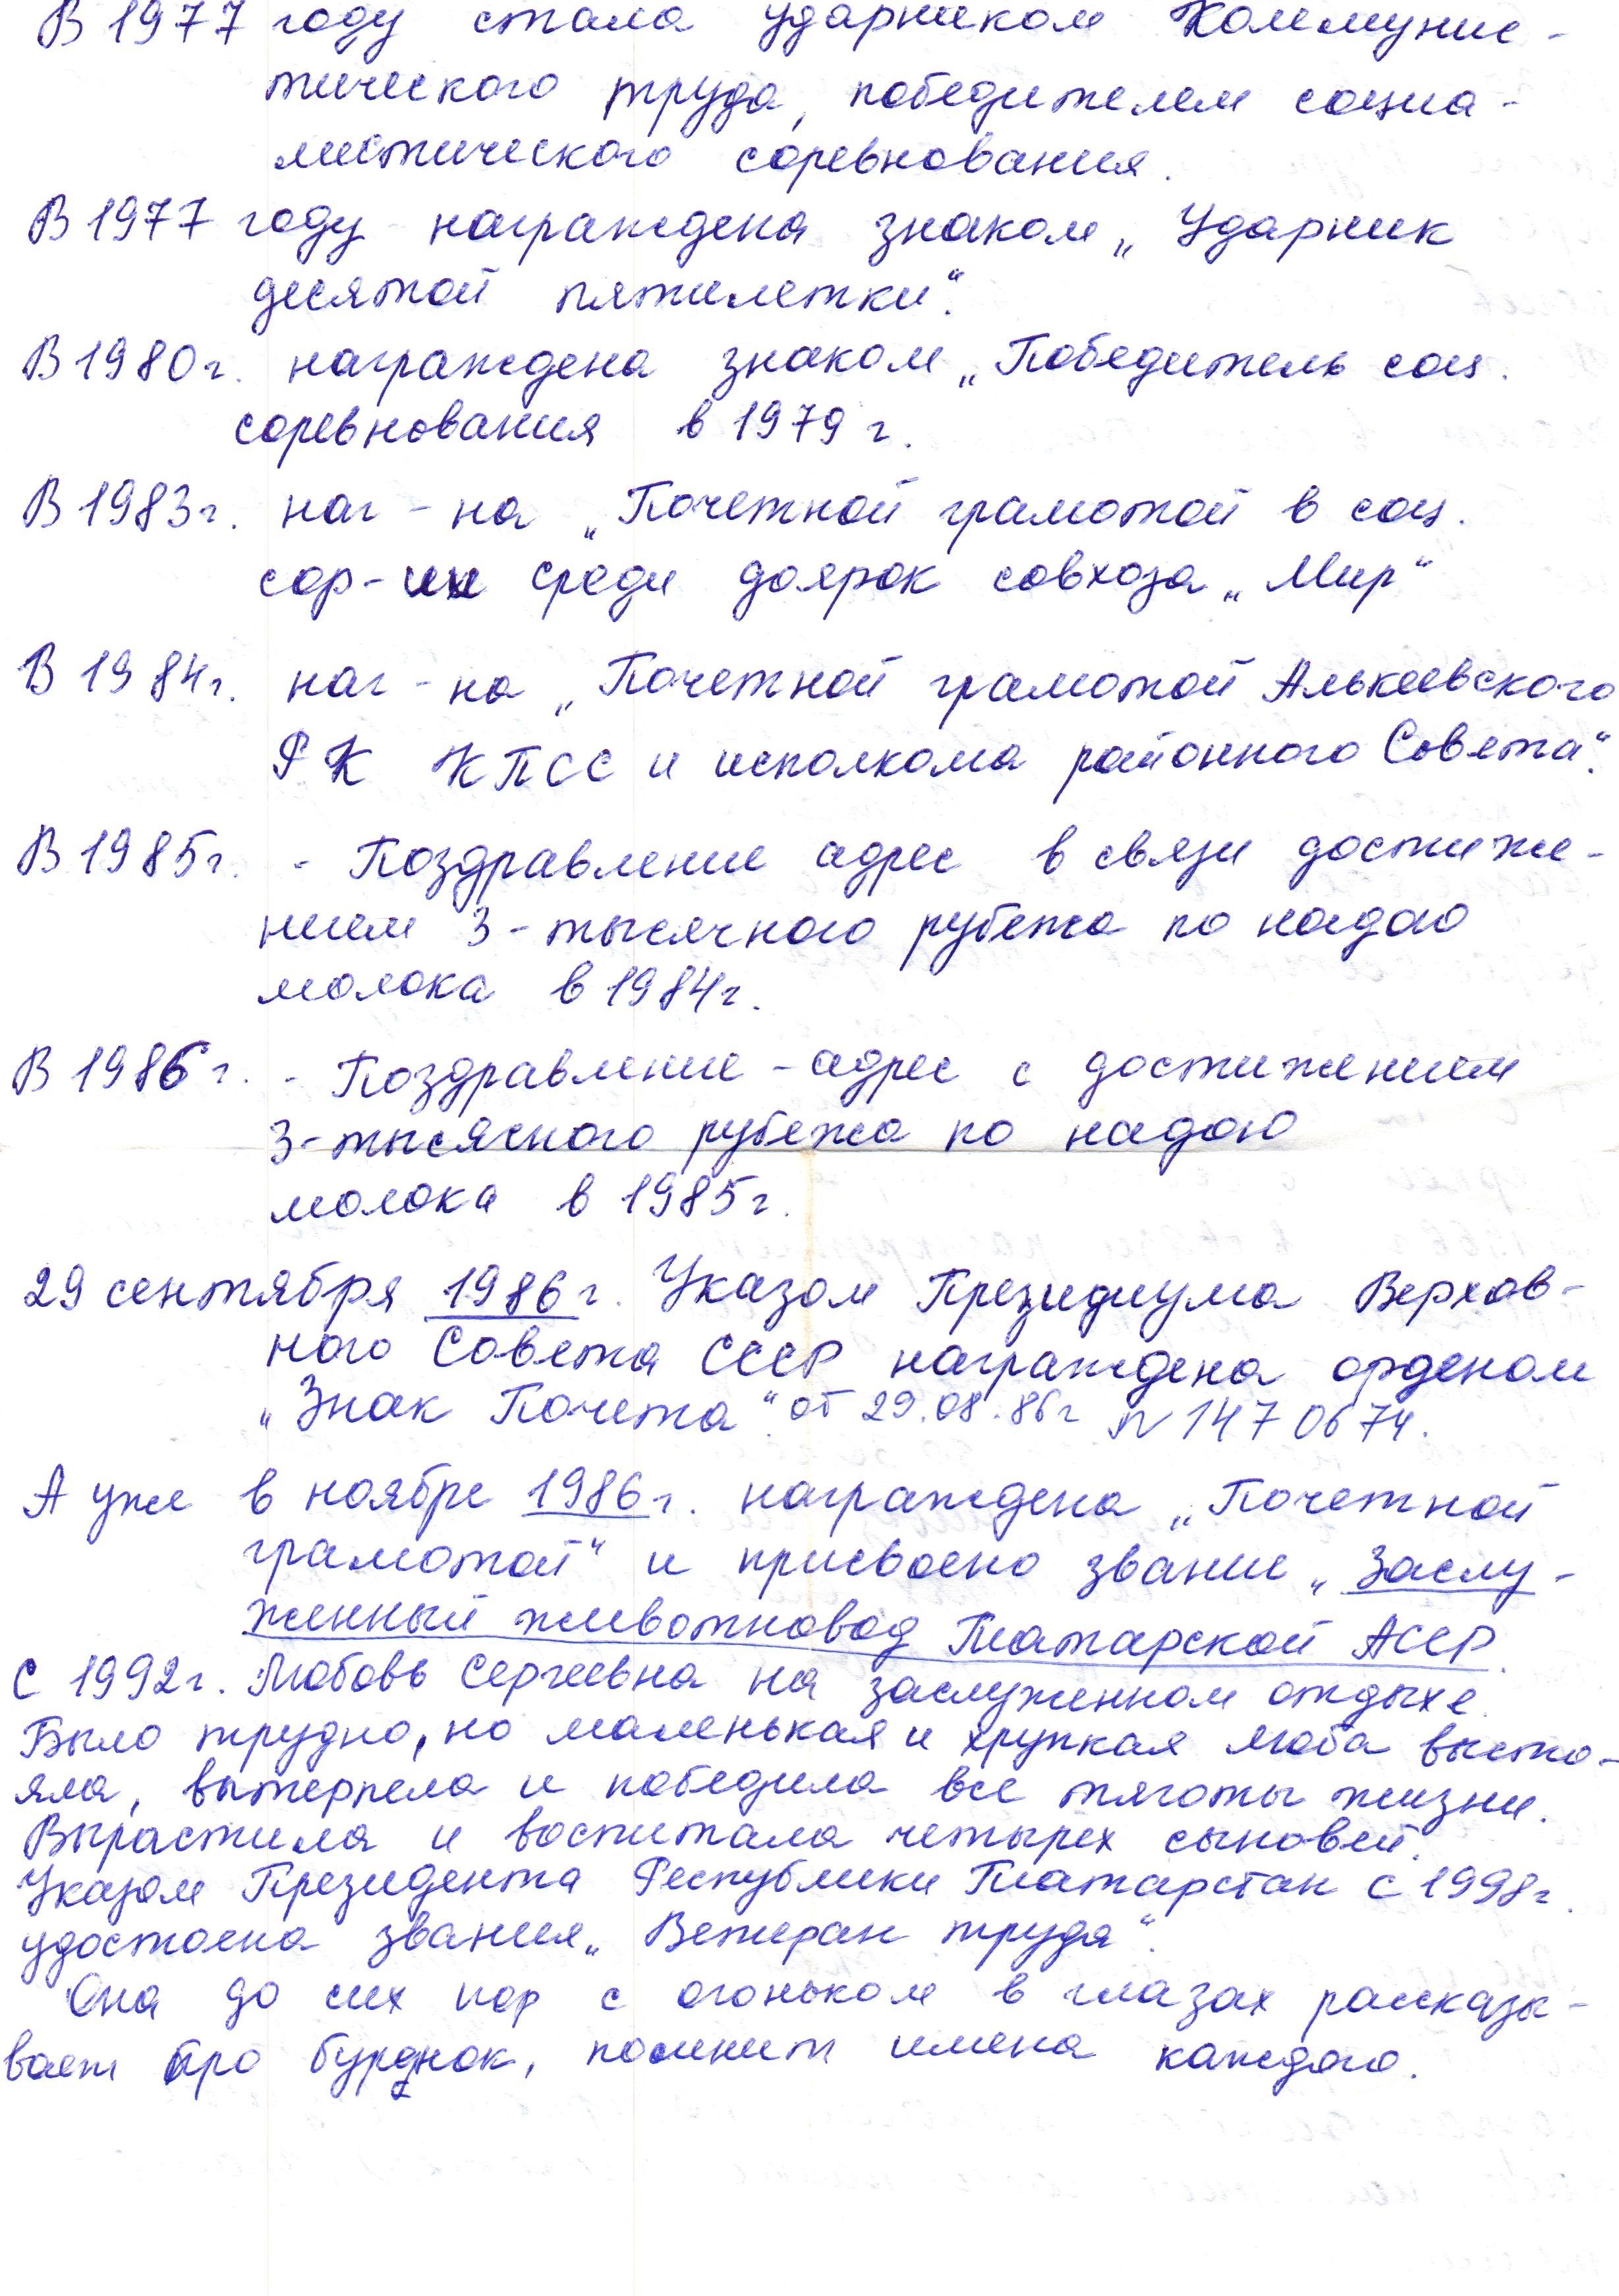 В 1977 году стала ударником Коммунис-
тического труда, победителем социа-
листического соревнования.
В 1977 году награждена знаком „Ударник
десятой пятилетки“.
В 1980 г. награждена знаком „Победитель соц.
соревнования в 1979 г.
В 1983 г. наг-на „Почетной грамотой в соц.
сор-ии среди доярок совхоза „Мир“
В 1984 г. наг-на „Почетной грамотой Алькеевского
РК КПСС и исполкома районного Совета“.
В 1985 г. - Поздравление адрес в связи достиже-
нием 3-тысячного рубежа по надою
молока в 1984 г.
В 1986 г. - Поздравление-адрес с достижением
3-тысячного рубежа по надою
молока в 1985 г.
29 сентября 1986 г. Указом Президиума Верхов-
ного Совета СССР награждена орденом
„Знак Почета“. от 29.08.86 г N 1470674.
А уже в ноябре 1986 г. награждена „Почетной
грамотой“ и присвоено звание „Заслу-
женный животновод Татарской АССР.
С 1992 г. Любовь Сергеевна на заслуженном отдыхе.
Было трудно, но маленькая и хрупкая Люба высто-
яла, вытерпела и победила все тяготы жизни.
Вырастила и воспитала четырех сыновей.
Указом Президента Республики Татарстан с 1998 г.
удостоена звания „Ветеран труда“.
Она до сих пор с огоньком в глазах рассказы-
вает про бурёнок, помнит имена каждого.